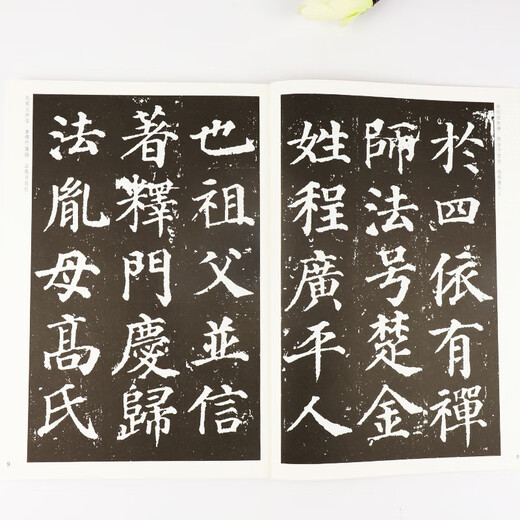 於四依有禪
師法号楚金
姓程廣平人
也祖父並信
著釋門慶歸
法胤母高氏